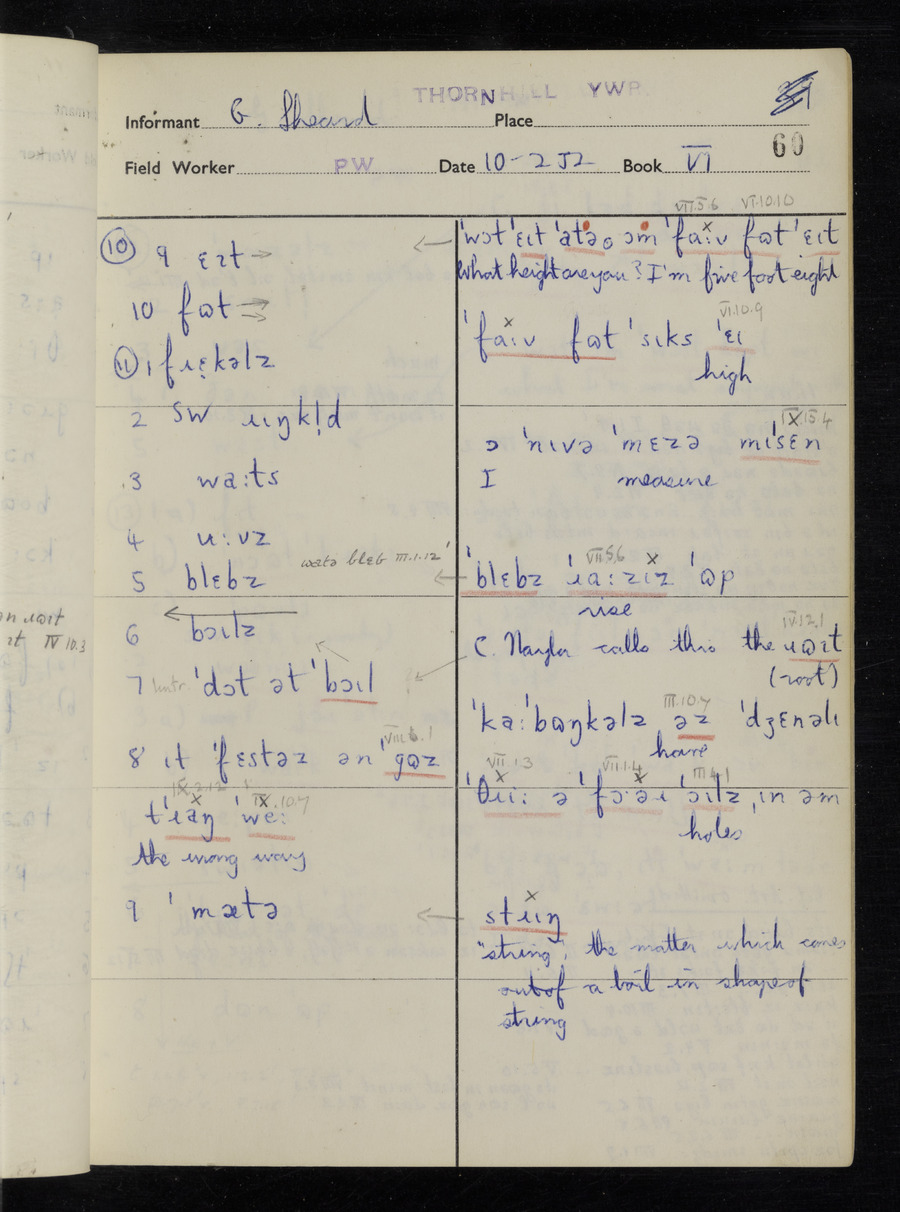 THORNHILL YWR.
Informant G. Sheard Place
60
Field Worker PW Date 10-2 52 Book VI
VII.5.6 VI.10.10
⑩ 9 ɛɪt → ← 'wɔt 'ɛɪt 'atə ɔm 'fa:v fɷt 'ɛɪt
What height are you? I'm five foot eight
10 fɷt
VI.10.9
'fa:v fɷt 'sɪks 'ɛɪ
high
⑪ 1 fɹɛkəlz
2 SW ɹɪŋkl̩d
IX.15.4
ɔ 'nɪvə 'mɛzə mɪ'sɛn
I measure
3 wa:ts
4 u:vz
watə blɛb III.1.12
VII.5.6
5 blɛbz ← 'blɛbz 'ɹa:zɪz 'ɷp
rise
6 bɔɪlz
IV.12.1
C. Naylor calls this the ɹɷɪt
(root)
7 'dɔt ət 'bɔɪl
III.10.7
'ka:'bɷŋkəlz əz 'dʒɛnəlɪ
have
8 ɪt 'fɛstəz ən 'gɷz
IX.10.7
t'ɹaŋ 'we:
the wrong way
VII.1.3 VII.1.4
'θɹi: ə 'fɔ·əɹ 'ɔɪlz, ɪn əm
holes
9 'mætə ← stɹɪŋ
"string", the matter which comes
out of a boil in shape of
string
an ɹɷɪt
IV 10.3